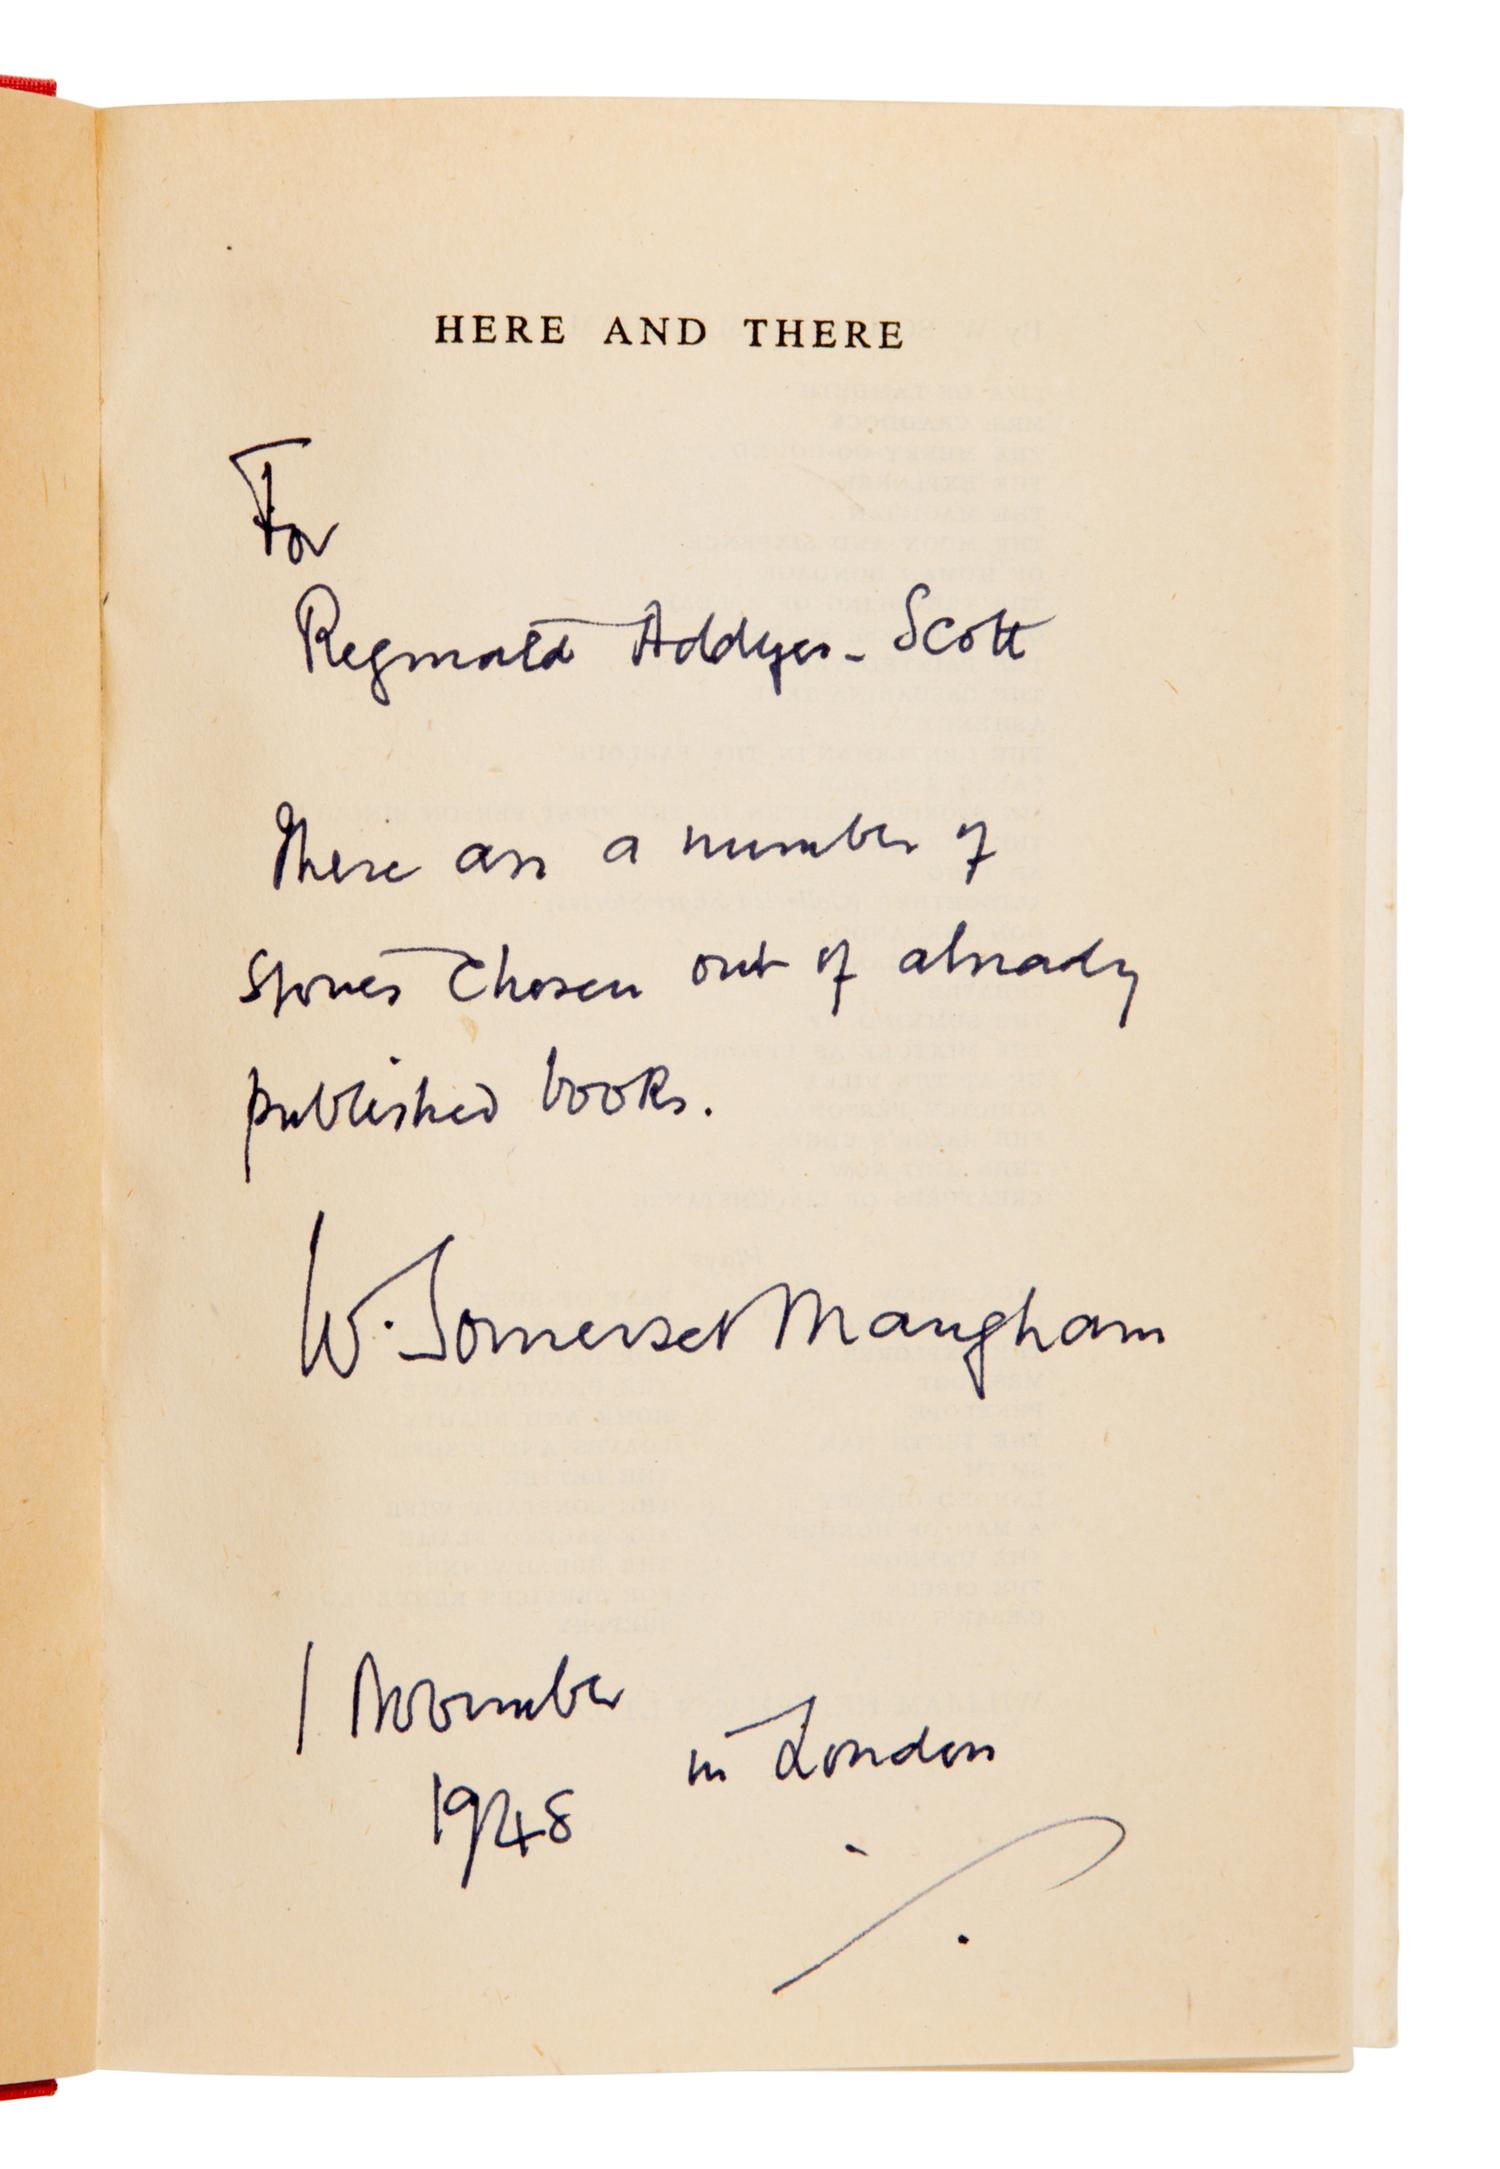 HERE AND THERE
For
Reginald Addyes-Scott
There are a number of
stories chosen out of already
published books.
W. Somerset Maugham
1 November
in London
1948